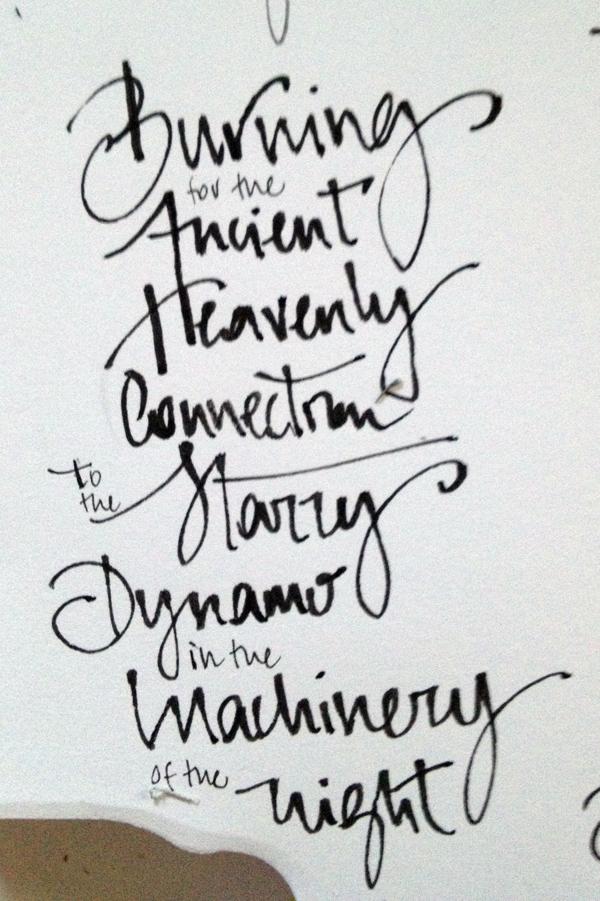 Burning
for the
Ancient
Heavenly
Connection
to
the
Starry
Dynamo
in the
Machinery
of the
night